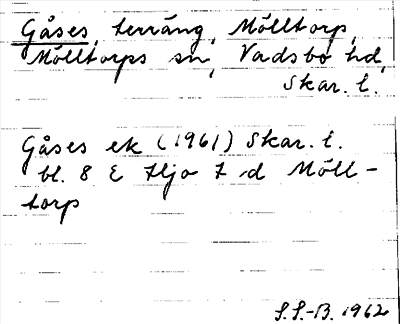 Gåses, terräng, Mölltorp,
Mölltorps sn, Vadsbo hd,
Skar. l.
Gåses ek (1961) Skar. l.
bl. 8 E Hjo t d Möll-
torp
S.S.-B. 1962